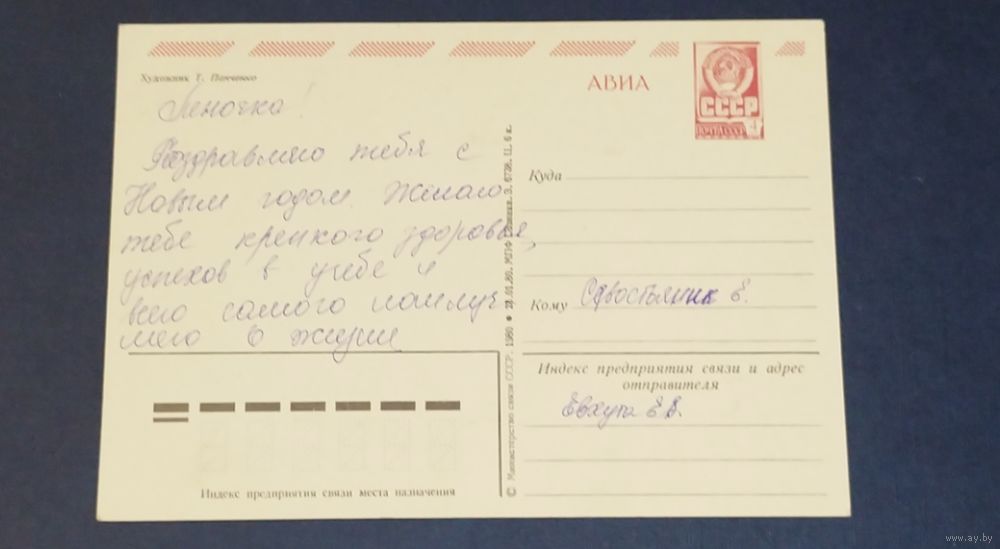 Художник Т. Панченко
АВИА
СССР
ПОЧТА СССР 4
Леночка!
Поздравляю тебя с
Новым годом. Желаю
тебе крепкого здоровья,
успехов в учебе и
всего самого наилуч
шего в жизни
Куда
Кому
Е.
Индекс предприятия связи и адрес
отправителя
Евхута Е.В.
Индекс предприятия связи места назначения
© Министерство связи СССР. 1980 23.01.80. МПФ Гознака. З. 6738. Ц. 6 к.
www.ay.by